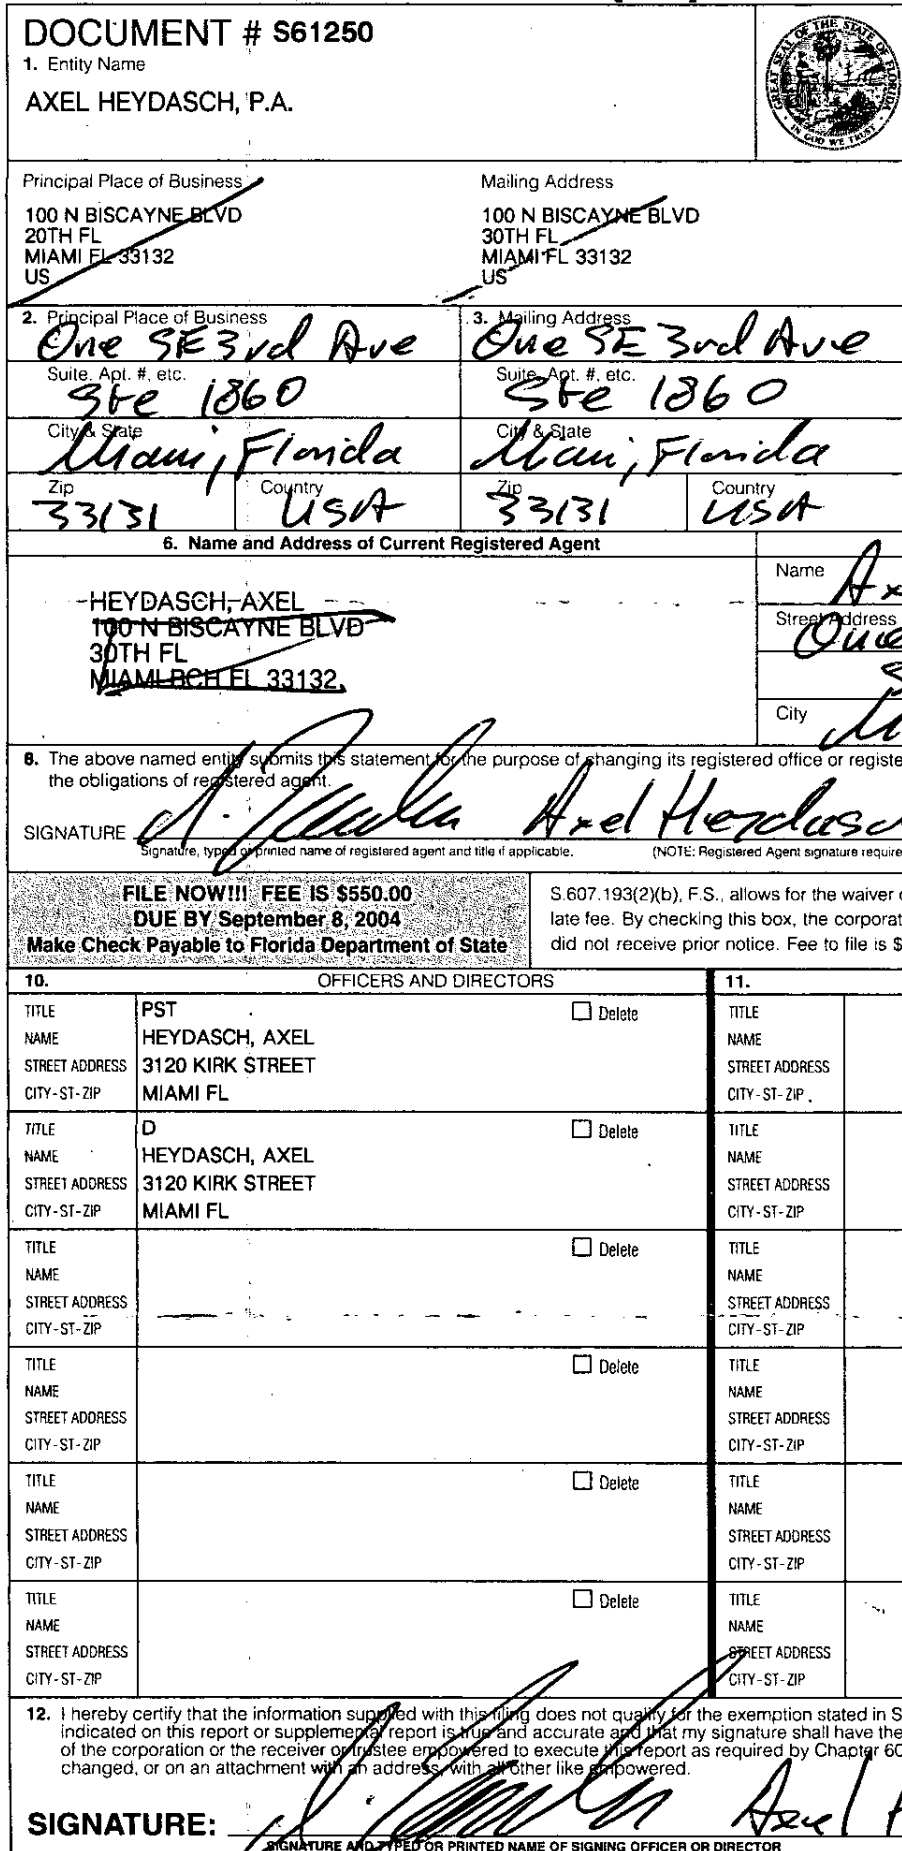 DOCUMENT # S61250
1. Entity Name
AXEL HEYDASCH, P.A.
GREAT SEAL OF THE STATE OF FLORIDA
IN GOD WE TRUST
Principal Place of Business
100 N BISCAYNE BLVD
20TH FL
MIAMI FL 33132
US
Mailing Address
100 N BISCAYNE BLVD
30TH FL
MIAMI FL 33132
US
2. Principal Place of Business
One SE 3rd Ave
3. Mailing Address
One SE 3rd Ave
Suite, Apt. #, etc.
Ste 1860
Suite, Apt. #, etc.
Ste 1860
City & State
Miami, Florida
City & State
Miami, Florida
Zip
33131
Country
USA
Zip
33131
Country
USA
6. Name and Address of Current Registered Agent
HEYDASCH, AXEL
100 N BISCAYNE BLVD
30TH FL
MIAMI BCH FL 33132
Name
Street Address
One
City
8. The above named entity submits this statement for the purpose of changing its registered office or registe
the obligations of registered agent.
SIGNATURE Axel Heydasc
Signature, typed or printed name of registered agent and title if applicable. (NOTE: Registered Agent signature require
FILE NOW!!! FEE IS $550.00
DUE BY September 8, 2004
Make Check Payable to Florida Department of State
S.607.193(2)(b), F.S., allows for the waiver
late fee. By checking this box, the corporat
did not receive prior notice. Fee to file is $
10. OFFICERS AND DIRECTORS 11.
TITLE PST Delete TITLE
NAME HEYDASCH, AXEL NAME
STREET ADDRESS 3120 KIRK STREET STREET ADDRESS
CITY-ST-ZIP MIAMI FL CITY-ST-ZIP
TITLE D Delete TITLE
NAME HEYDASCH, AXEL NAME
STREET ADDRESS 3120 KIRK STREET STREET ADDRESS
CITY-ST-ZIP MIAMI FL CITY-ST-ZIP
TITLE Delete TITLE
NAME NAME
STREET ADDRESS STREET ADDRESS
CITY-ST-ZIP CITY-ST-ZIP
TITLE Delete TITLE
NAME NAME
STREET ADDRESS STREET ADDRESS
CITY-ST-ZIP CITY-ST-ZIP
TITLE Delete TITLE
NAME NAME
STREET ADDRESS STREET ADDRESS
CITY-ST-ZIP CITY-ST-ZIP
TITLE Delete TITLE
NAME NAME
STREET ADDRESS STREET ADDRESS
CITY-ST-ZIP CITY-ST-ZIP
12. I hereby certify that the information supplied with this filing does not qualify for the exemption stated in S
indicated on this report or supplemental report is true and accurate and that my signature shall have the
of the corporation or the receiver or trustee empowered to execute this report as required by Chapter 60
changed, or on an attachment with an address, with all other like empowered.
SIGNATURE: Axel
SIGNATURE AND TYPED OR PRINTED NAME OF SIGNING OFFICER OR DIRECTOR